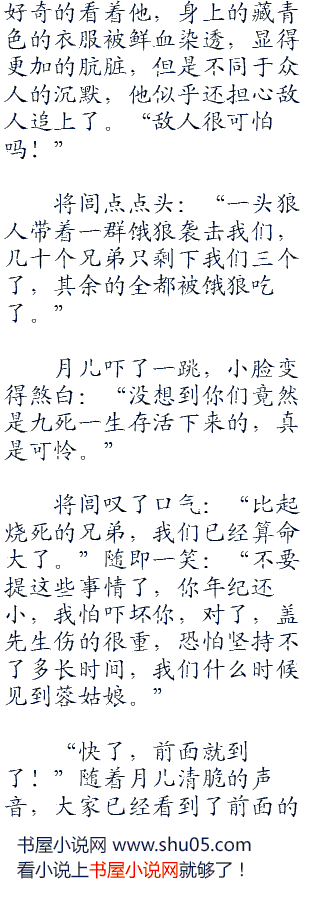 好奇的看着他，身上的藏青
色的衣服被鲜血染透，显得
更加的肮脏，但是不同于众
人的沉默，他似乎还担心敌
人追上了。“敌人很可怕
吗！”
将闾点点头：“一头狼
人带着一群饿狼袭击我们，
几十个兄弟只剩下我们三个
了，其余的全都被饿狼吃
了。”
月儿吓了一跳，小脸变
得煞白：“没想到你们竟然
是九死一生存活下来的，真
是可怜。”
将闾叹了口气：“比起
烧死的兄弟，我们已经算命
大了。”随即一笑：“不要
提这些事情了，你年纪还
小，我怕吓坏你，对了，盖
先生伤的很重，恐怕坚持不
了多长时间，我们什么时候
见到蓉姑娘。”
“快了，前面就到
了！”随着月儿清脆的声
音，大家已经看到了前面的
书屋小说网 www.shu05.com
看小说上书屋小说网就够了！